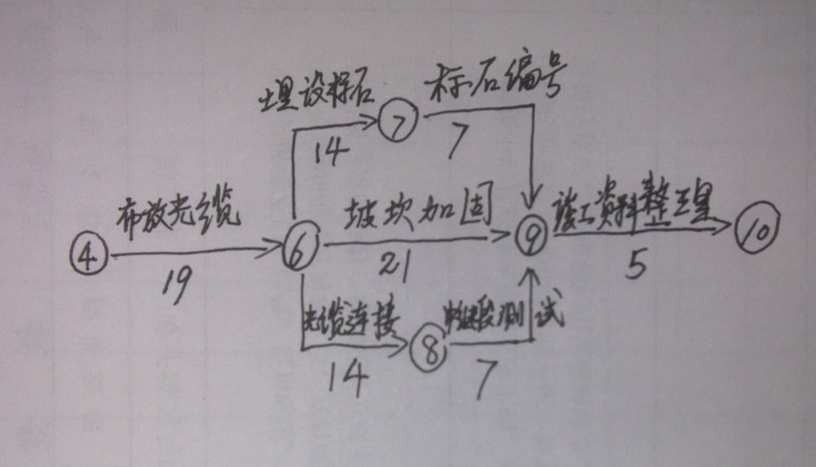 埋设标石
标石编号
⑦
14
7
布放光缆
坡坎加固
竣工资料整理
④
⑥
⑨
⑩
19
21
5
光缆连接
中继段测试
⑧
14
7